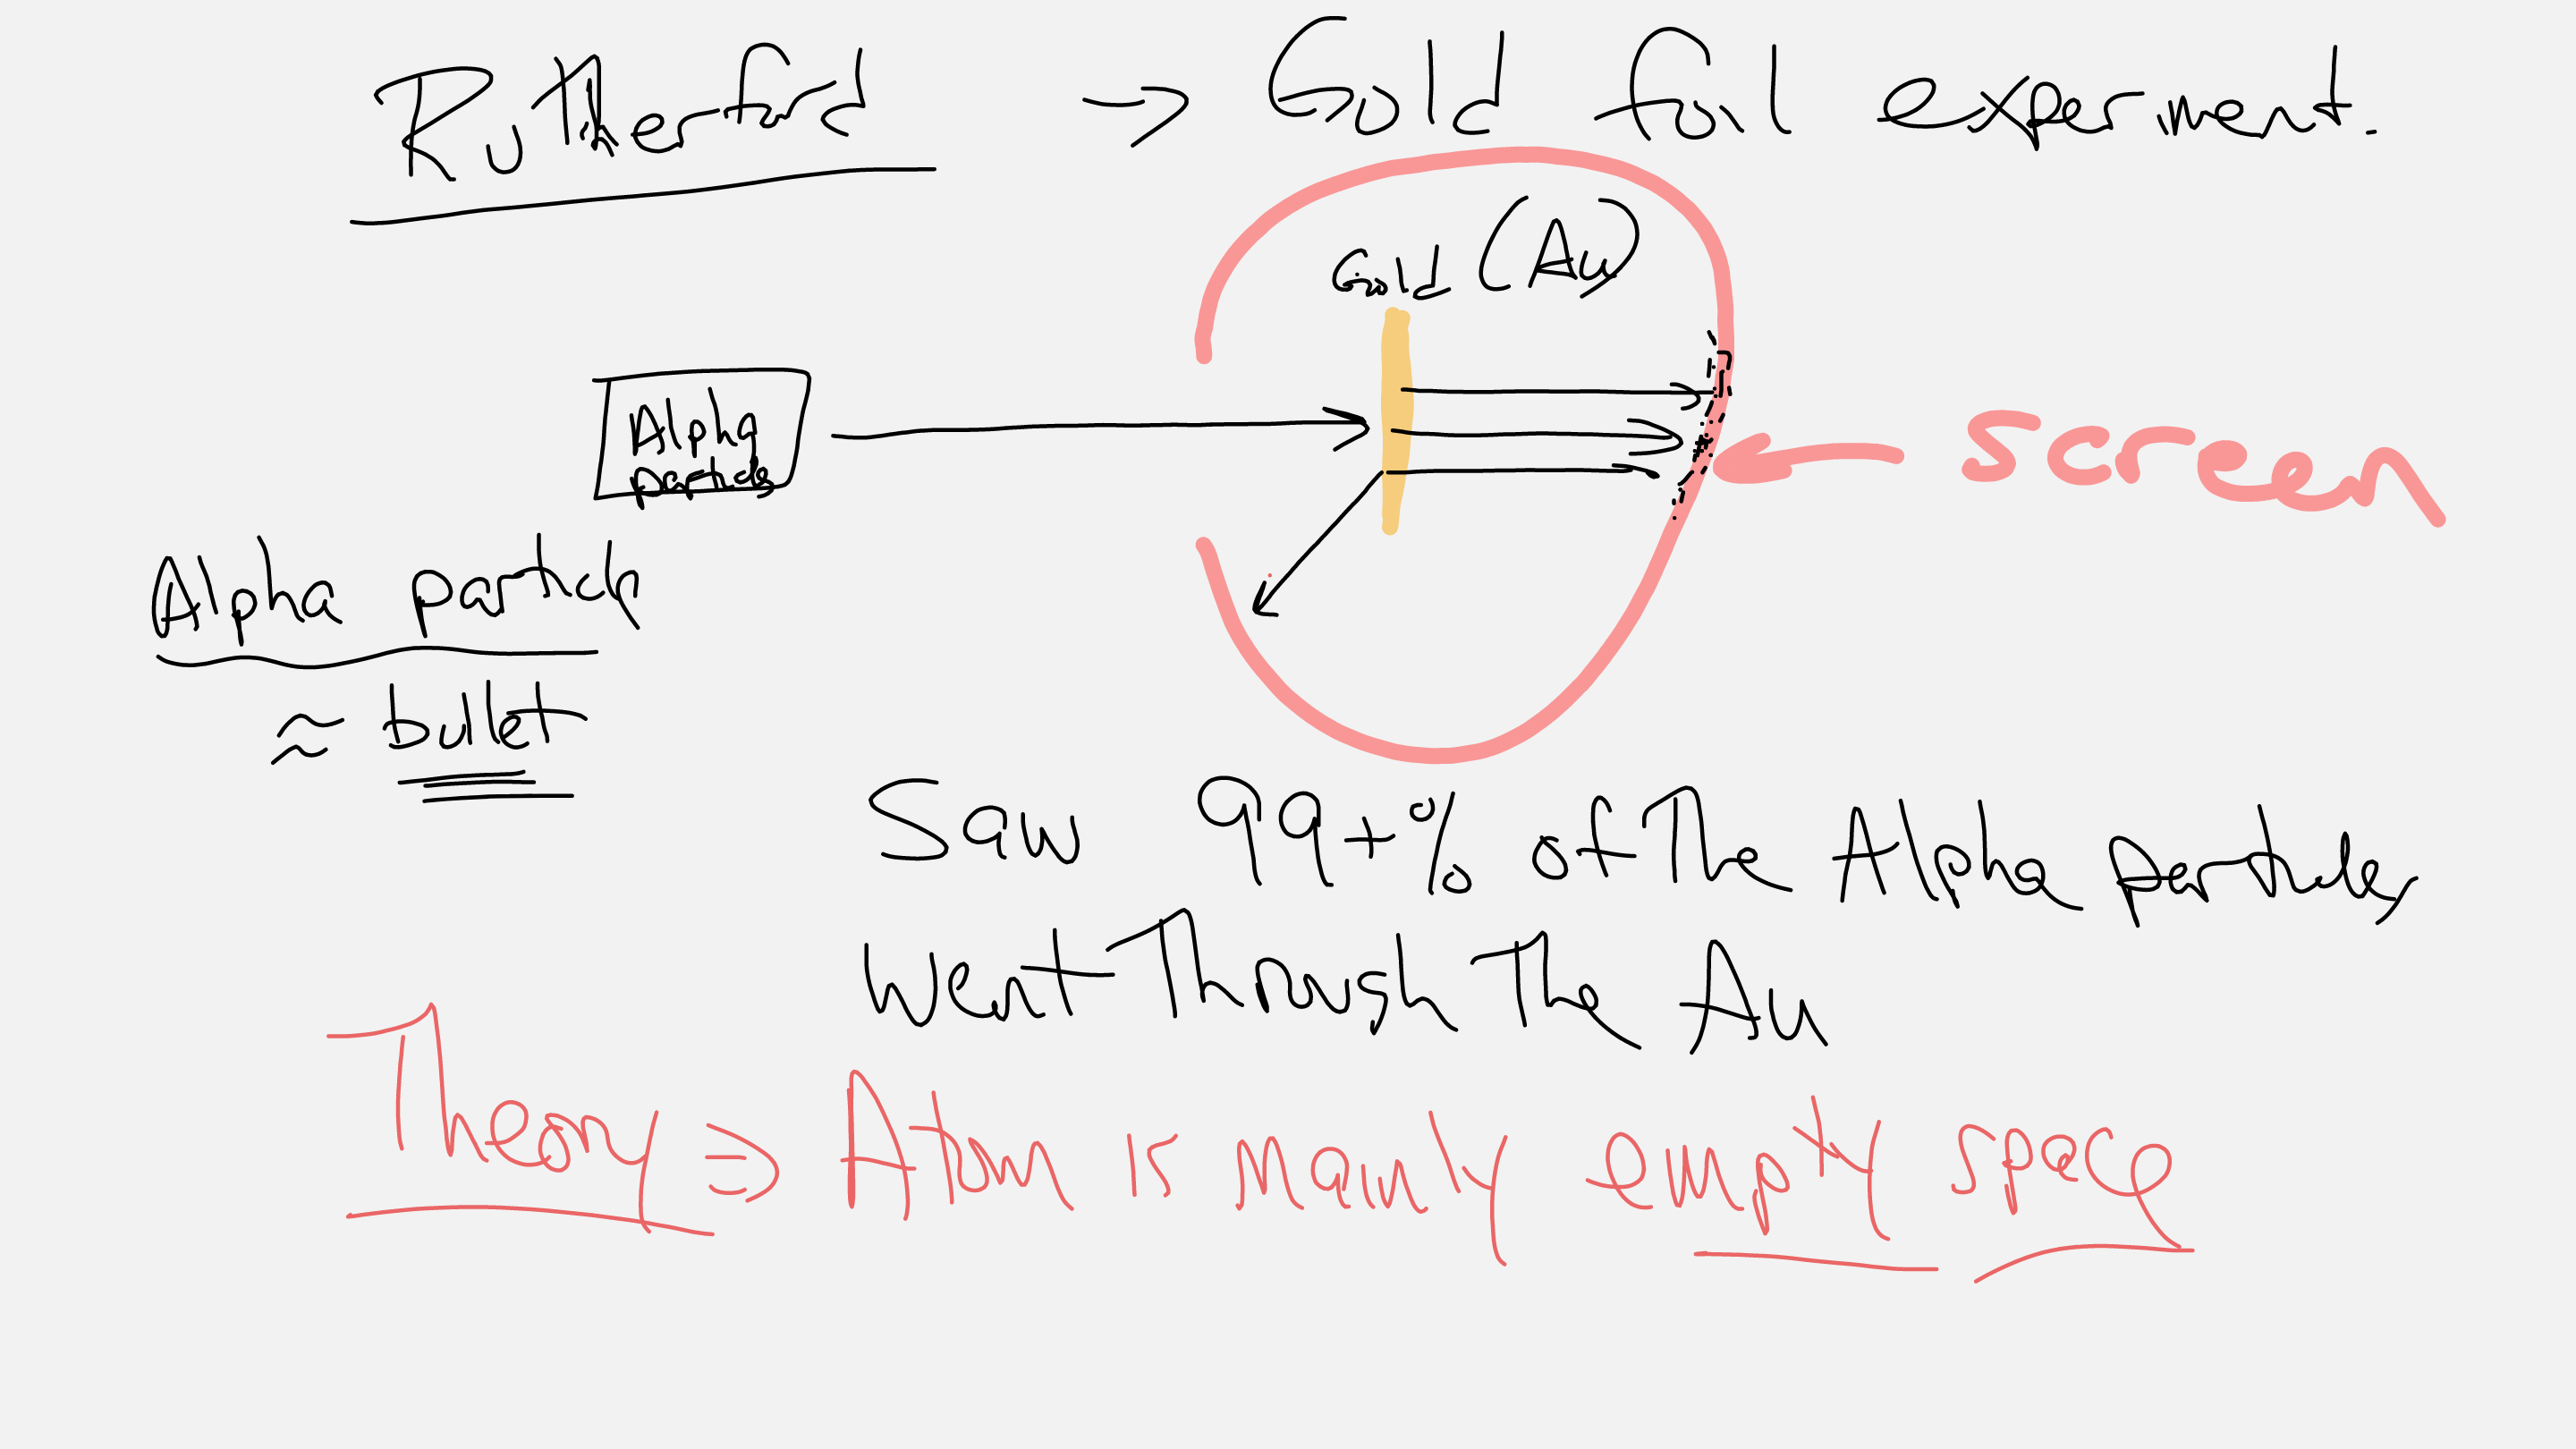 Rutherford → Gold foil experiment.
Gold (Au)
Alpha
particles
← screen
Alpha particle
≈ bullet
Saw 99+% of The Alpha particles
Went Through The Au
Theory ⇒ Atom is mainly empty space